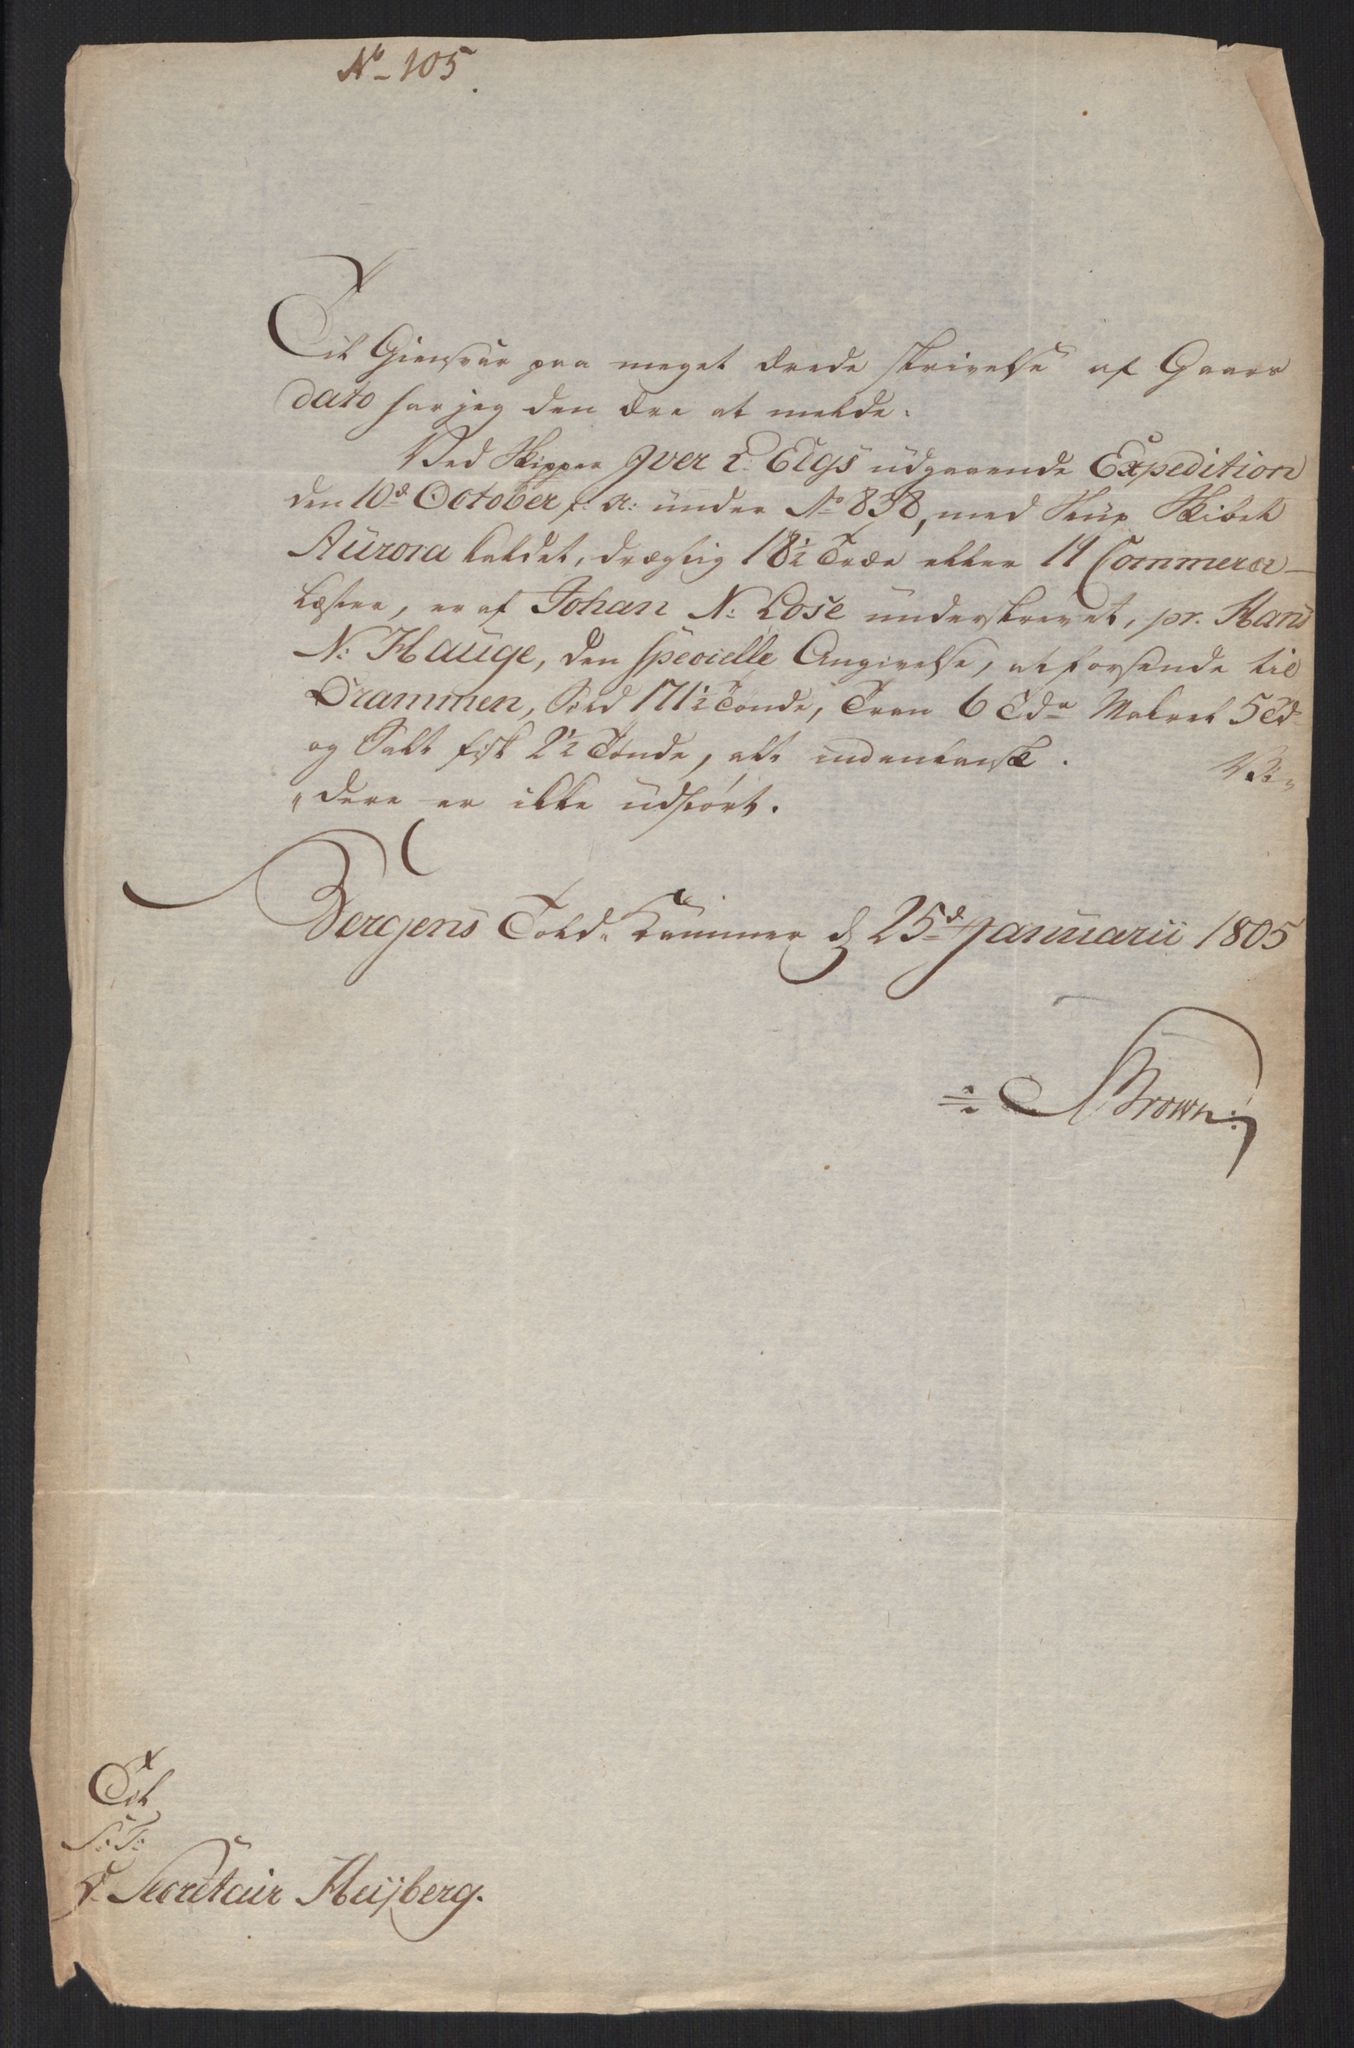 No 105.
Til Giensvar paa meget ærede skrivelse af Gaars
dato har jeg den ære at melde:
Ved Skipper Iver L: Elgs udgaaende Expedition
den 10de October f: A: under No 838, med Skibet
Aurora kaldet, drægtig 18½ Træe eller 19 Commerce
Læster, er af Johan N: Lose underskrevet, pr. Hans
N: Hauge, den specielle Angivelse, at forsende til
Drammen, Sild 171½ Tønde, Tran 6 Tdr Makrel 5 Td.
og Salt fisk 2½ Tønde, alt indenlansk. Vi-
"dere er ikke udført.
Bergens Told-Kammer d 25de Januarii 1805
Brown
Til
S: T:
Hr Secretair Heijberg.